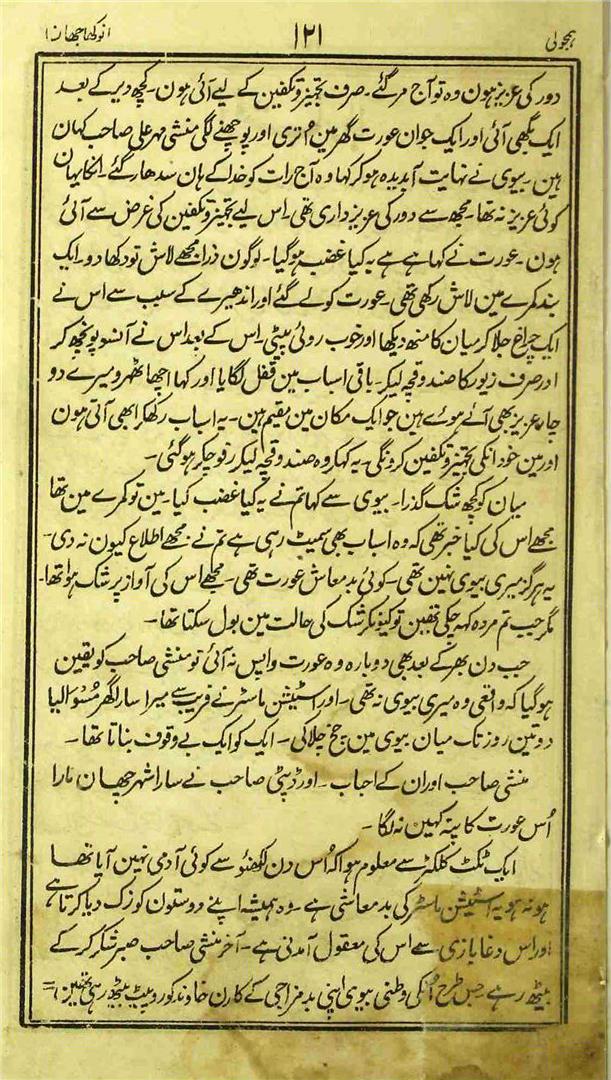 ہمجولی ۱۲۱ انوکھا جہان!
دور کی عزیز ہون وہ تو آج مر گئے۔ صرف تجہیز و تکفین کے لیے آئی ہون۔ کچھ دیر کے بعد
ایک بگھی آئی اور ایک جوان عورت گھر مین اُتری اور پوچھنے لگی منشی مہر علی صاحب کہان
ہین۔ بیوی نے نہایت آبدیدہ ہو کر کہا وہ آج رات کو خدا کے ہان سدھار گئے۔ انکا یہان
کوئی عزیز نہ تھا۔ مجھ سے دور کی عزیز داری تھی۔ اس لیے تجہیز و تکفین کی غرض سے آئی
ہون۔ عورت نے کہا ہے ہے یہ کیا غضب ہو گیا۔ لوگون ذرا مجھے لاش تو دکھا دو۔ ایک
بند کمرے مین لاش رکھی تھی۔ عورت کو لے گئے اور اندھیرے کے سبب سے اس نے
ایک چراغ جلا کر میان کا منھ دیکھا اور خوب روئی پیٹی۔ اس کے بعد اس نے آنسو پونچھ کر
اور صرف زیور کا صندوقچہ لیکر۔ باقی اسباب مین قفل لگایا اور کہا اچھا ٹھہرو میرے دو
چار عزیز بھی آئے ہوئے ہین جو ایک مکان مین مقیم ہین۔ یہ اسباب رکھکر ابھی آتی ہون
اور مین خود انکی تجہیز و تکفین کرونگی۔ یہ کہکر وہ صندوقچہ لیکر رفو چکر ہو گئی۔
میان کو کچھ شک گذرا۔ بیوی سے کہا تم نے یہ کیا غضب کیا۔ مین تو کمرے مین تھا
مجھے اس کی کیا خبر تھی کہ وہ اسباب بھی سمیٹ رہی ہے تم نے مجھے اطلاع کیون نہ دی۔
یہ ہرگز میری بیوی نہین تھی۔ کوئی بدمعاش عورت تھی۔ مجھے اس کی آواز پر شک ہوا تھا۔
مگر جب تم مردہ کہہ چکی تھین تو کیونکر شک کی حالت مین بول سکتا تھا۔
جب دن بھر کے بعد بھی دوبارہ وہ عورت واپس نہ آئی تو منشی صاحب کو یقین
ہو گیا کہ واقعی وہ میری بیوی نہ تھی۔ اور اسٹیشن ماسٹر نے فریب سے میرا سارا گھر مُسوا لیا
دو تین روز تک میان بیوی مین چخ چلا کی۔ ایک کو ایک بے وقوف بناتا تھا۔
منشی صاحب اور ان کے احباب۔ اور ڈپٹی صاحب نے سارا شہر چھان مارا
اُس عورت کا پتہ کہین نہ لگا۔
ایک ٹکٹ کلکٹر سے معلوم ہوا کہ اُس دن لکھنؤ سے کوئی آدمی نہین آیا تھا
ہو نہ ہو یہ اسٹیشن ماسٹر کی بدمعاشی ہے۔ وہ ہمیشہ اپنے دوستون کو زک دیا کرتا ہے
اور اس دغا بازی سے اس کی معقول آمدنی ہے۔ آخر منشی صاحب صبر شکر کر کے
بیٹھ رہے جس طرح اُنکی وطنی بیوی اپنی بدمزاجی کے کارن خاوند کو رو پیٹ بیٹھ رہی تھین۔